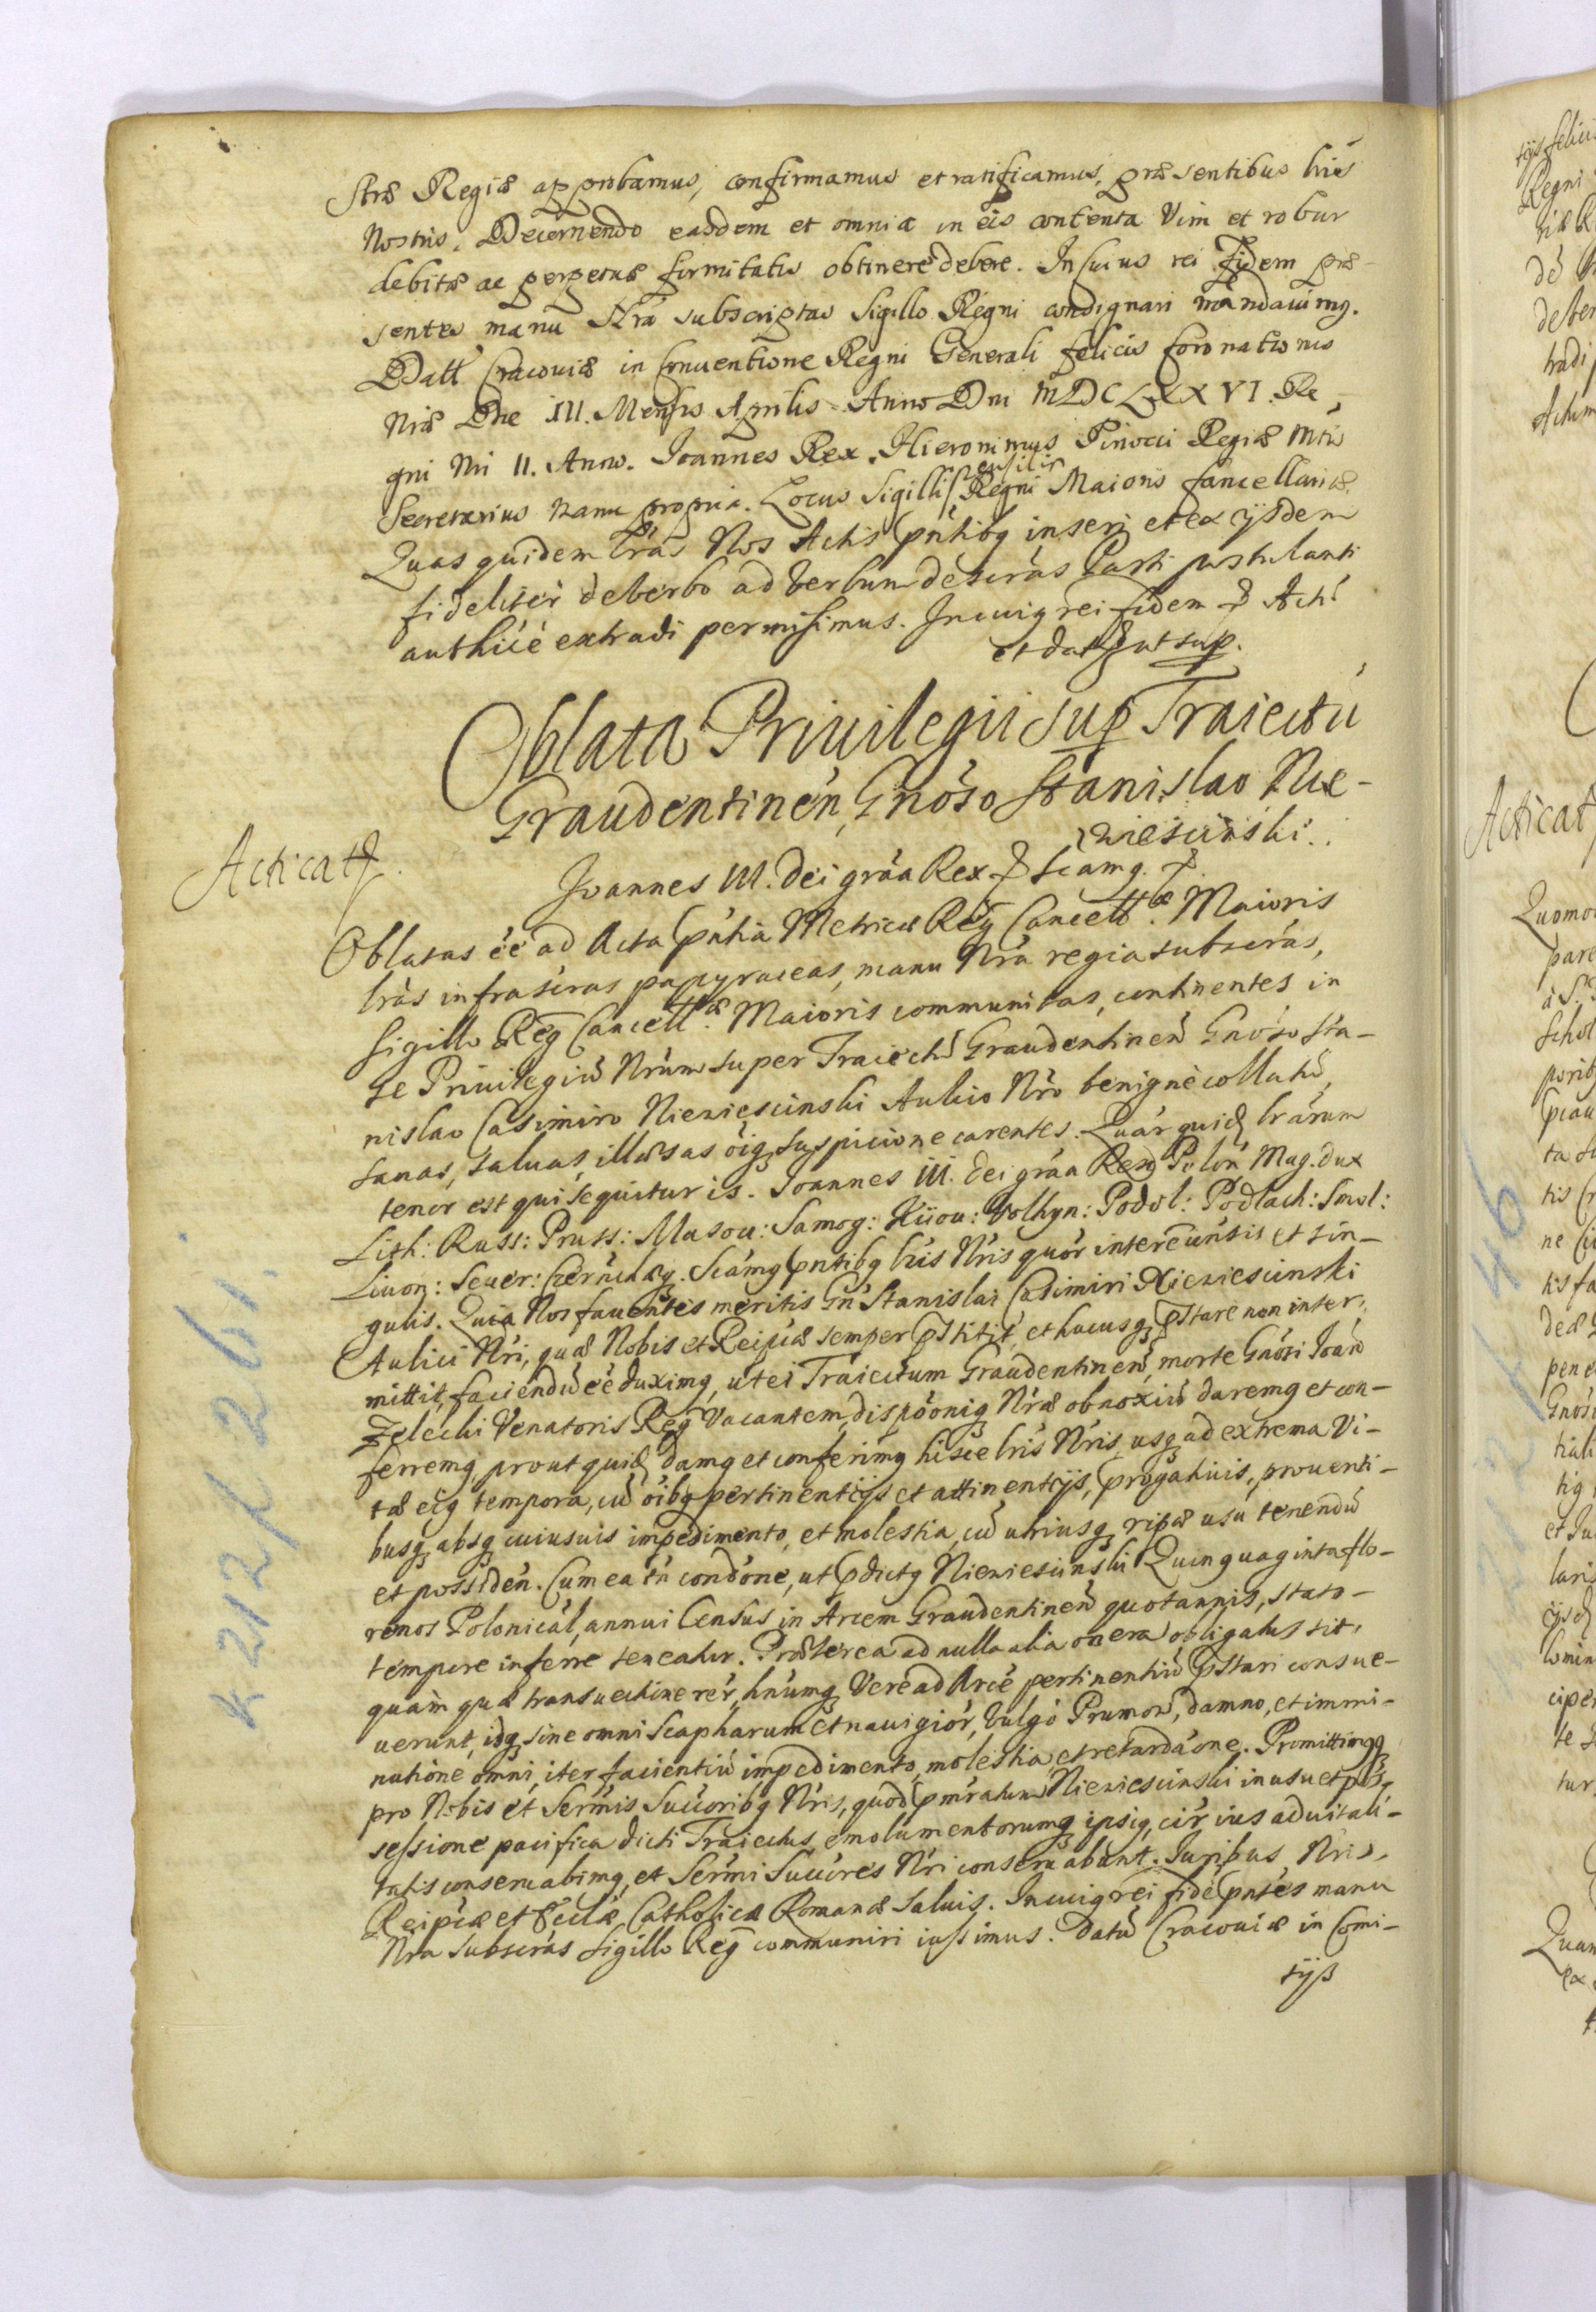 stræ Regiæ approbamus, confirmamus et ratificamus, præsentibus lr̃is
Nostris. Decernendo easdem et omnia in eis contenta Vim et robur
debitæ ac perpetuæ firmitatis obtinere debere. In cuius rei fidem præ-
sentes manu Nr̃a subscriptas Sigillo Regni consignari mandauimq.
Datt Cracouiæ in Conuentione Regni Generali felicis Coronationis
Nr̃æ Die III. Mensis Aprilis Anno Dni MDCLXXVI. Re-
gni Nri II. Anno. Joannes Rex. Hieronimus Pinocci Regiæ Mtis
Secretarius manu propria. Locus Sigilli pensilis Regni Maioris Cancellariæ.
Quas quidem lr̃as Nos Actis pñtibq inseri et ex ijsdem
fideliter de verbo ad verbum descr̃as Parti postulanti
authĩcè extradi permisimus. In cuiq rei fidem & Act:
et dat ut sup.
Oblata Priuilegii sup Traiectũ
Graudentineñ, Gñoso Stanislao Nie-
wiescinski.
Acticat.
Joannes III. Dei grãa Rex & Scamq. &
Oblatas eẽ ad Acta pñtia Metricæ Reg Cancellæ Maioris
lr̃as infrascr̃as papyraceas, manu Nr̃a regia subscr̃as,
Sigillo Reg Cancellæ Maioris communitas, continentes in
se Priuilegiũ Nrũm super Traiectũ Graudentineñ Gñoso Sta-
nislao Casimiro Niewiescinski Aulico Nr̃o benignè collatũ,
sanas, saluas, illæsas oĩq suspicione carentes. Quar quid lr̃arum
tenor est qui sequitur is. Joannes III. Dei grãa Rex Polon Mag. Dux
Lith: Russ: Pruss: Masou: Samog: Kiiou: Volhyn: Podol: Podlach: Smol:
Liuon: Seuer: Czerniechq. Scãmq pñtibq lr̃is Nr̃is quor interẽ uñsis et sin-
gulis. Quia Nos fauentes meritis Gñ Stanislai Casimiri Niewiescinski
Aulici Nr̃i, quæ Nobis et Reipcæ semper pstitit, et hucusq pstare non inter-
mittit, faciendũ eẽ duximq, ut ei Traiectum Graudentineñ, morte Gñosi Joan
Zelecki Venatoris Reg Vacantem, dispõoniq Nr̃æ obnoxiũ daremq et con-
ferremq, prout quid damq et conferimq hisce lr̃is Nr̃is, usq ad extrema Vi-
tæ eiq tempora, cũ oĩbq pertinentijs et attinentijs, prõgatiuis, prouenti-
busq absq cuiusuis impedimento, et molestia, cũ utriusq ripæ usu tenendũ
et possideñ. Cum ea tñ condõne, ut pdictq Niewiescinski Quinquaginta flo-
renos Polonicał, annui Census in Arcem Graudentineñ quotannis, stato-
tempore inferre teneatur. Præterea ad nulla alia onera obligatus sit,
quàm quæ transuectione rẽr, hñumq Verè ad Arcẽ pertinentiũ pstari consue-
uerunt, idq sine omni Scapharum et nauigiõr, Vulgò Prumow, damno, et immi-
nutione omni, iter facientiũ impedimento, molestia, et retardãone. Promittimqq
pro Nobis et Serm̃is Succoribq Nr̃is, quod pmr̃atum Niewiescinski in usu et pos-
sessione pacifica dicti Traiectus emolumentorumq ipsiq, cir ius aduitali-
tatis conseruabimq, et Serm̃i Succres Nr̃i conseruabunt. Juribus Nr̃is,
Reipcæ et Ecclæ Catholicæ Romanæ saluis. In cuiq rei fidẽ pñtes manu
Nr̃a subscr̃as Sigillo Reg communiri iussimus. Datũ Cracouiæ in Comi-
tijs